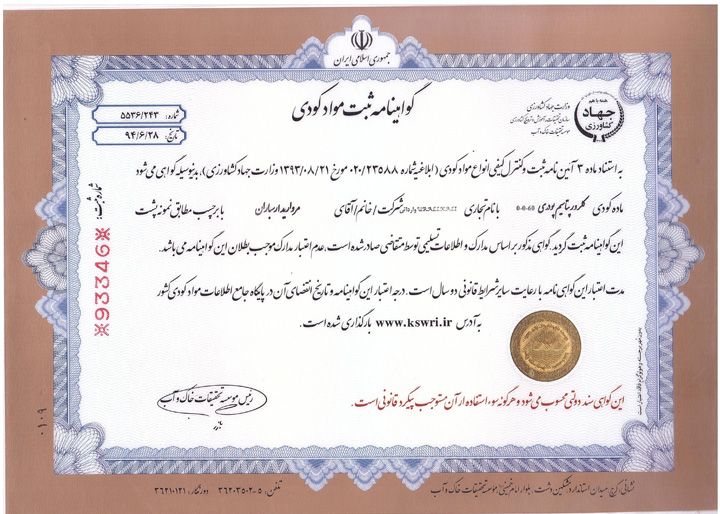 جمهوری اسلامی ایران
گواهینامه ثبت مواد کودی
شماره: ۵۵۳۶/۲۴۳
تاریخ: ۹۴/۶/۲۸
وزارت جهاد کشاورزی
سازمان تحقیقات، آموزش و ترویج کشاورزی
موسسه تحقیقات خاک و آب
همه با هم
جهاد
کشاورزی
به استناد ماده ۳ آیین نامه ثبت و کنترل کیفی انواع مواد کودی (ابلاغیه شماره ۰۲۰/۲۳۵۸۸ مورخ ۱۳۹۳/۰۸/۲۱ وزارت جهاد کشاورزی)، بدینوسیله گواهی می شود
ماده کودی کلرور پتاسیم پودری 0-0-60 با نام تجاری وارداتی شرکت / خانم / آقای مروارید ارس باران با برچسب مطابق نمونه پشت
این گواهینامه ثبت گردید. گواهی مذکور بر اساس مدارک و اطلاعات تسلیمی توسط متقاضی صادر شده است، عدم اعتبار مدارک موجب بطلان این گواهینامه می باشد.
مدت اعتبار این گواهی نامه با رعایت سایر شرایط قانونی دو سال است. درجه اعتبار این گواهینامه و تاریخ انقضای آن در پایگاه جامع اطلاعات مواد کودی کشور
به آدرس www.kswri.ir بارگذاری شده است.
شماره ثبت:
※93346※
رئیس موسسه تحقیقات خاک و آب
این گواهی سند دولتی محسوب می شود و هرگونه سوء استفاده از آن مستوجب پیگرد قانونی است.
بدون مهر برجسته و هولوگرام فاقد اعتبار است
۰۱۰۹
نشانی: کرج، میدان استاندارد، مشکین دشت، بلوار امام خمینی، موسسه تحقیقات خاک و آب
تلفن: ۵-۳۶۲۰۳۵۰۲ دورنگار: ۳۶۲۱۰۱۲۱